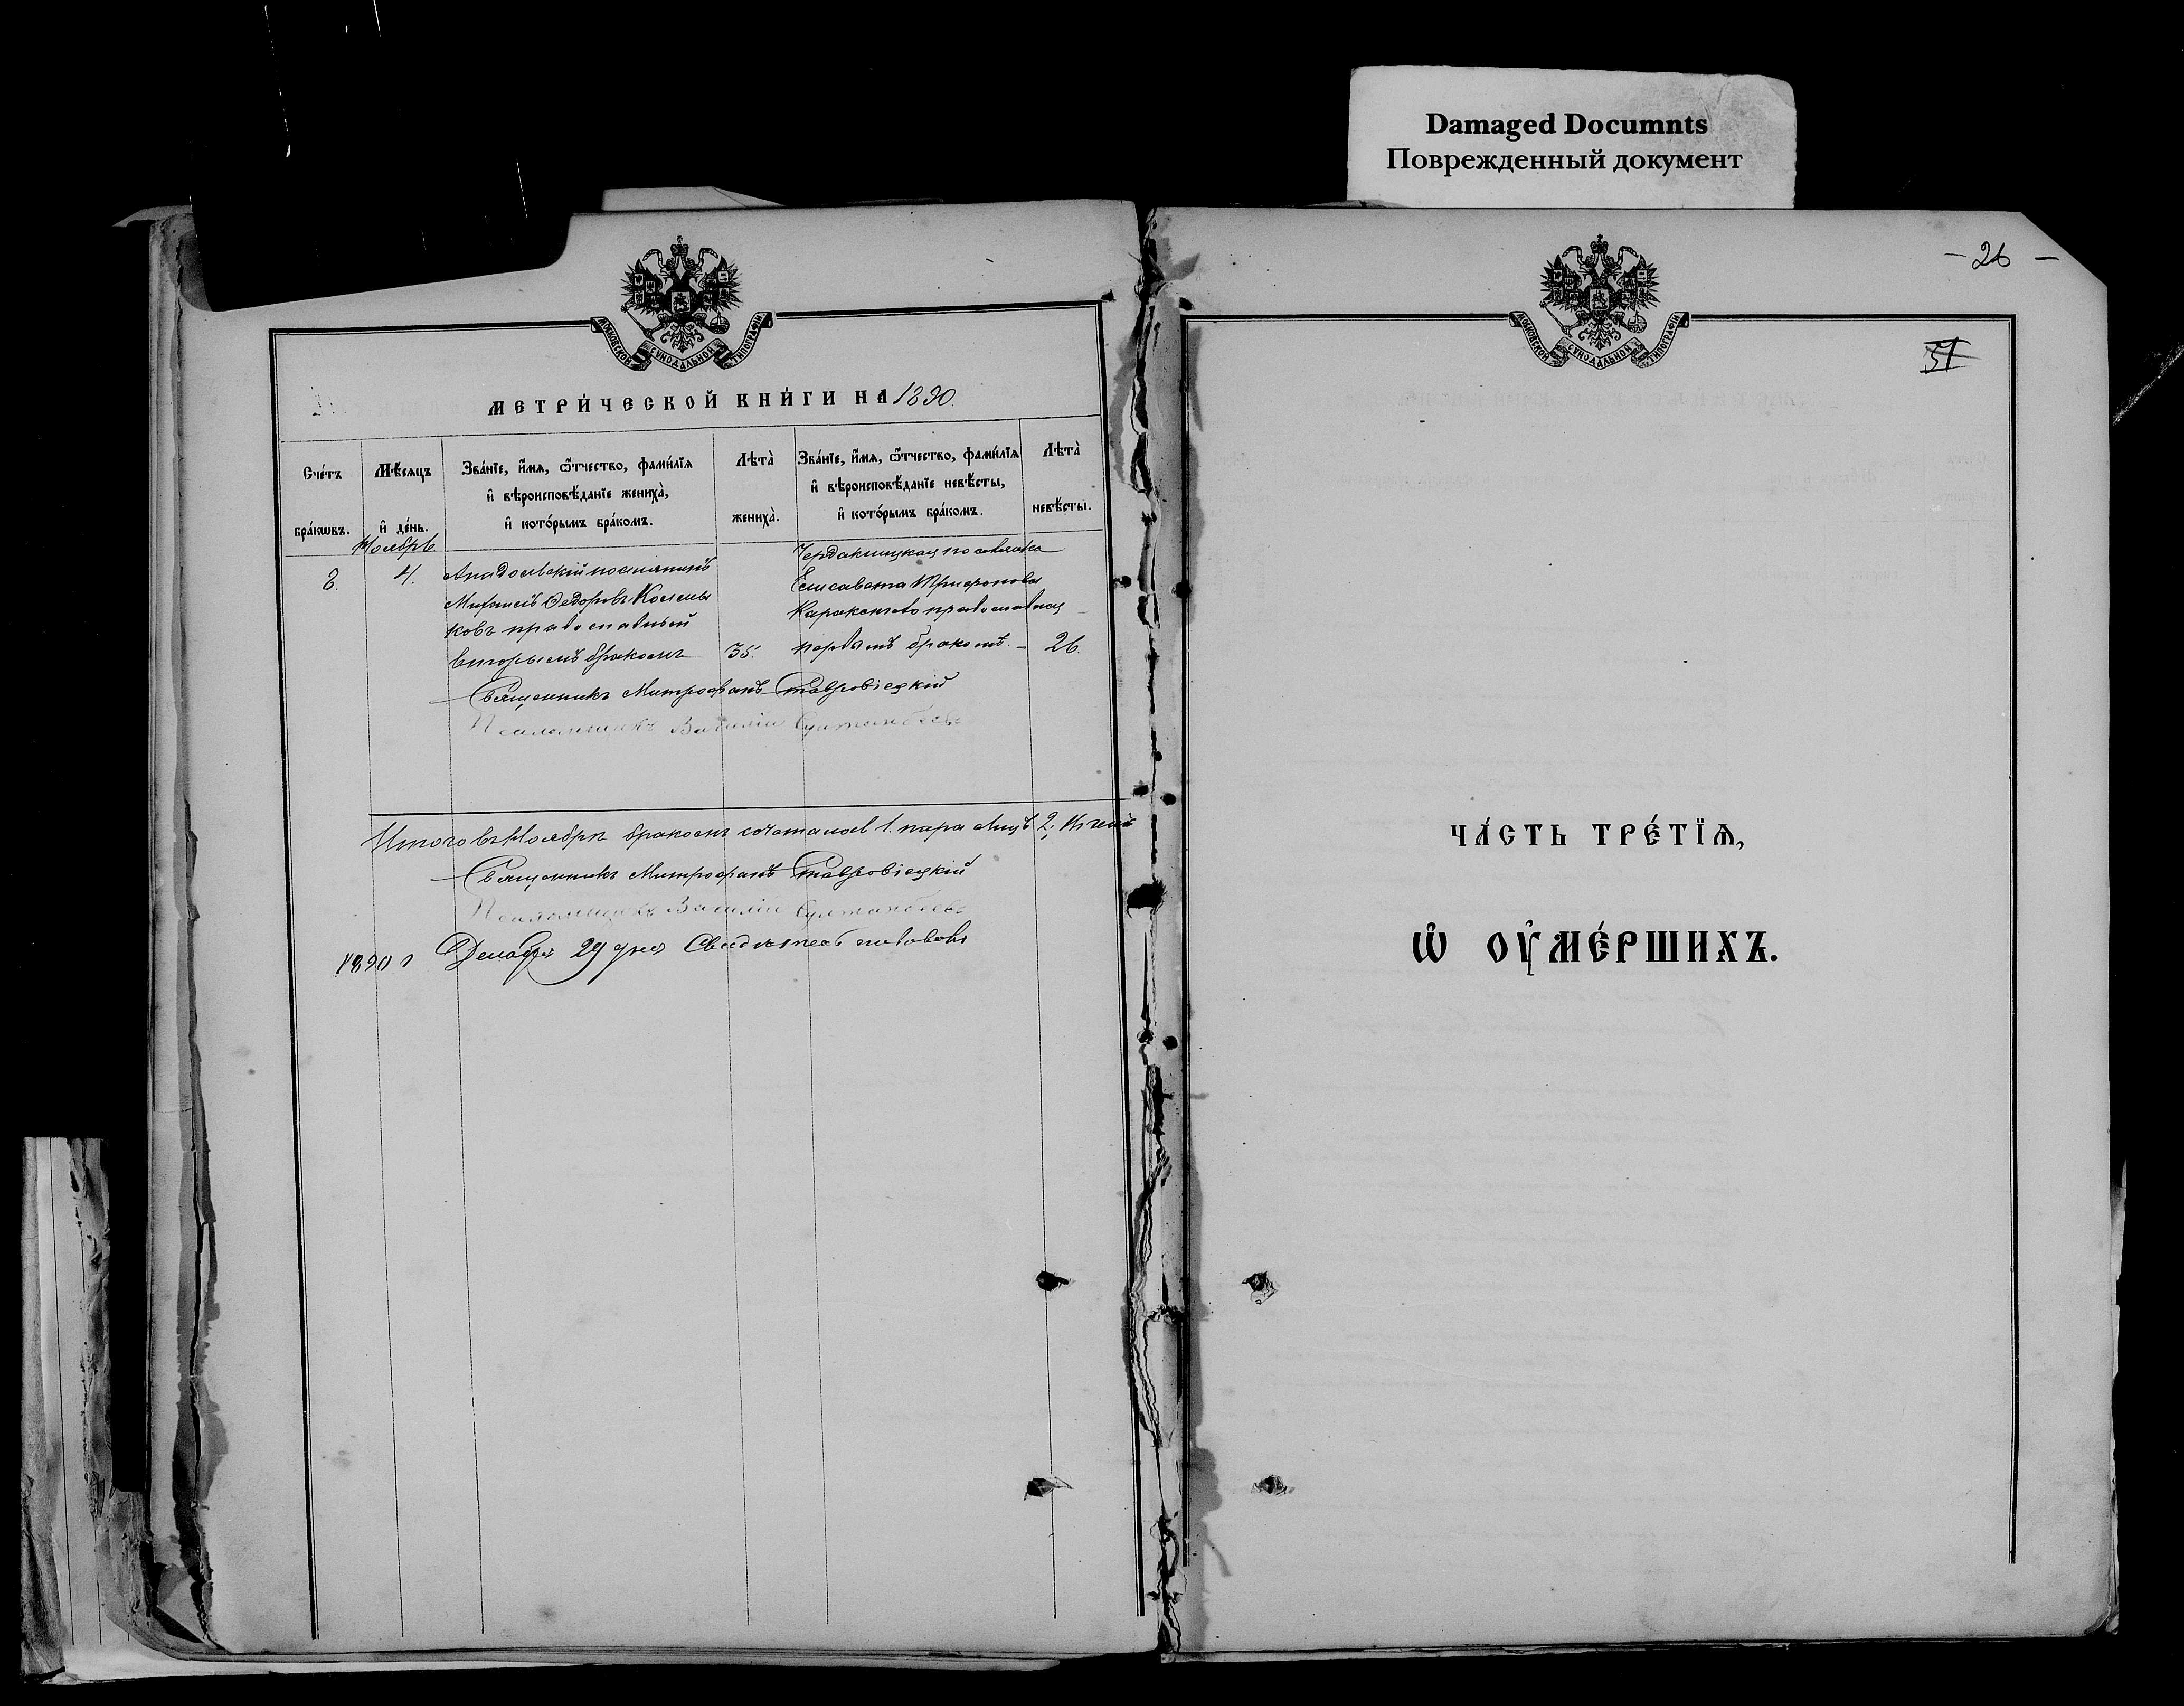 Damaged Documnts
Поврежденный документ
МОСКОВСКОЙ СѴНОДАЛЬНОЙ ТИПОГРАФІИ
МЕТРИ́ЧЕСКОЙ КНИ́ГИ НА 1890.
Сче́тъ бра́кѡвъ.
Мѣ́сяцъ и҆ де́нь.
Зва́нїе, и҆́мѧ, ѻ҆́тчество, фами́лїѧ
и҆ вѣроисповѣ́данїе жениха̀,
и҆ кото́рымъ бра́комъ.
Лѣта̀ жениха̀.
Зва́нїе, и҆́мѧ, ѻ҆́тчество, фами́лїѧ
и҆ вѣроисповѣ́данїе невѣ́сты,
и҆ кото́рымъ бра́комъ.
Лѣта̀ невѣ́сты.
Ноябрь
4.
поселянинъ
Михаилъ Ѳедоровъ
ковъ православный
вторымъ бракомъ
35.
поселянка
Елисавета Трифонова
православная
первымъ бракомъ.
26.
Священникъ Митрофанъ
Псаломщикъ Василій
Итого въ Ноябрѣ бракомъ сочеталось 1. пара лицъ 2.
Священникъ Митрофанъ
Псаломщикъ Василій
1890 г Декабря 29 дня Свидѣтельствовалъ
МОСКОВСКОЙ СѴНОДАЛЬНОЙ ТИПОГРАФІИ
- 26 -
ЧА́СТЬ ТРЕ́ТЇѦ,
Ѽ ОУ҆МЕ́РШИХЪ.